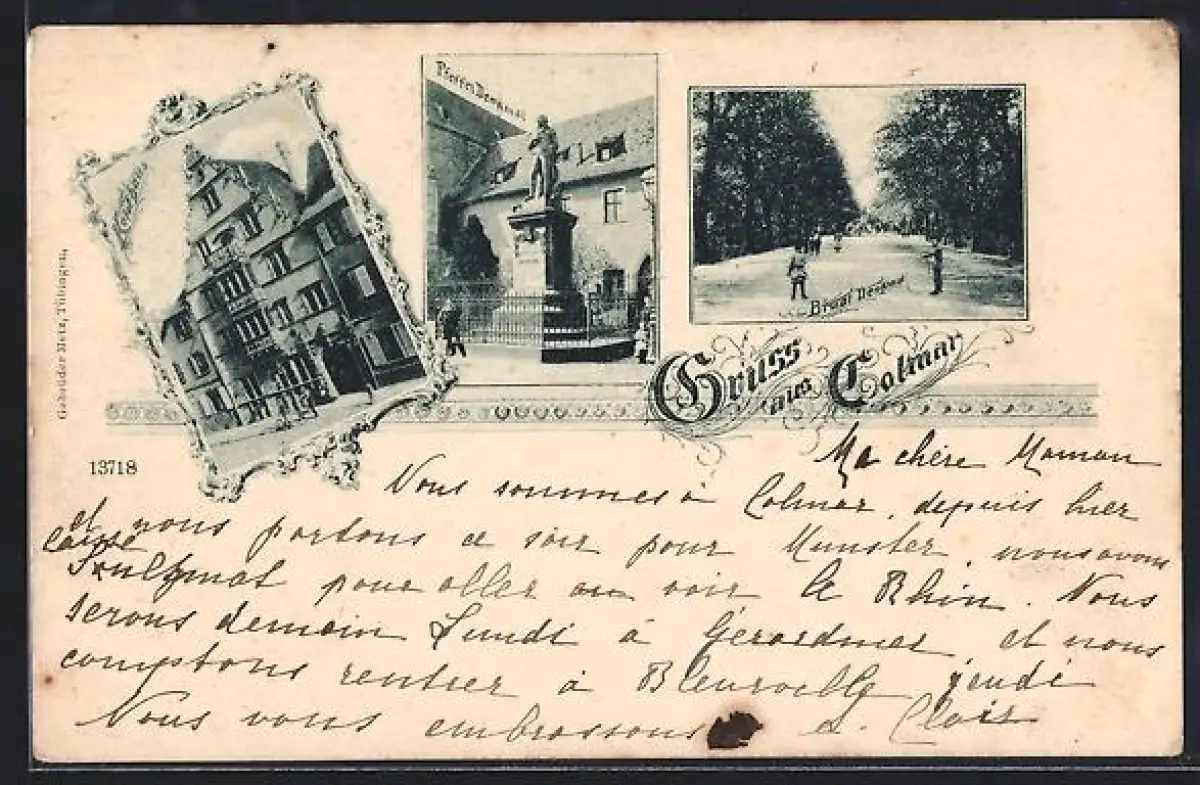 Pfeffel Denkmal
Bruat Denkmal
Gruss aus Colmar
Gebrüder Metz, Tübingen.
13718
Ma chère Maman
Nous sommes à Colmar, depuis hier
et nous partons ce soir pour Munster, nous avons
laissé
Soultzmat pour aller voir le Rhin. Nous
serons demain Lundi à Gérardmer et nous
comptons rentrer à Bleurville jeudi
Nous vous embrassons L. Clair